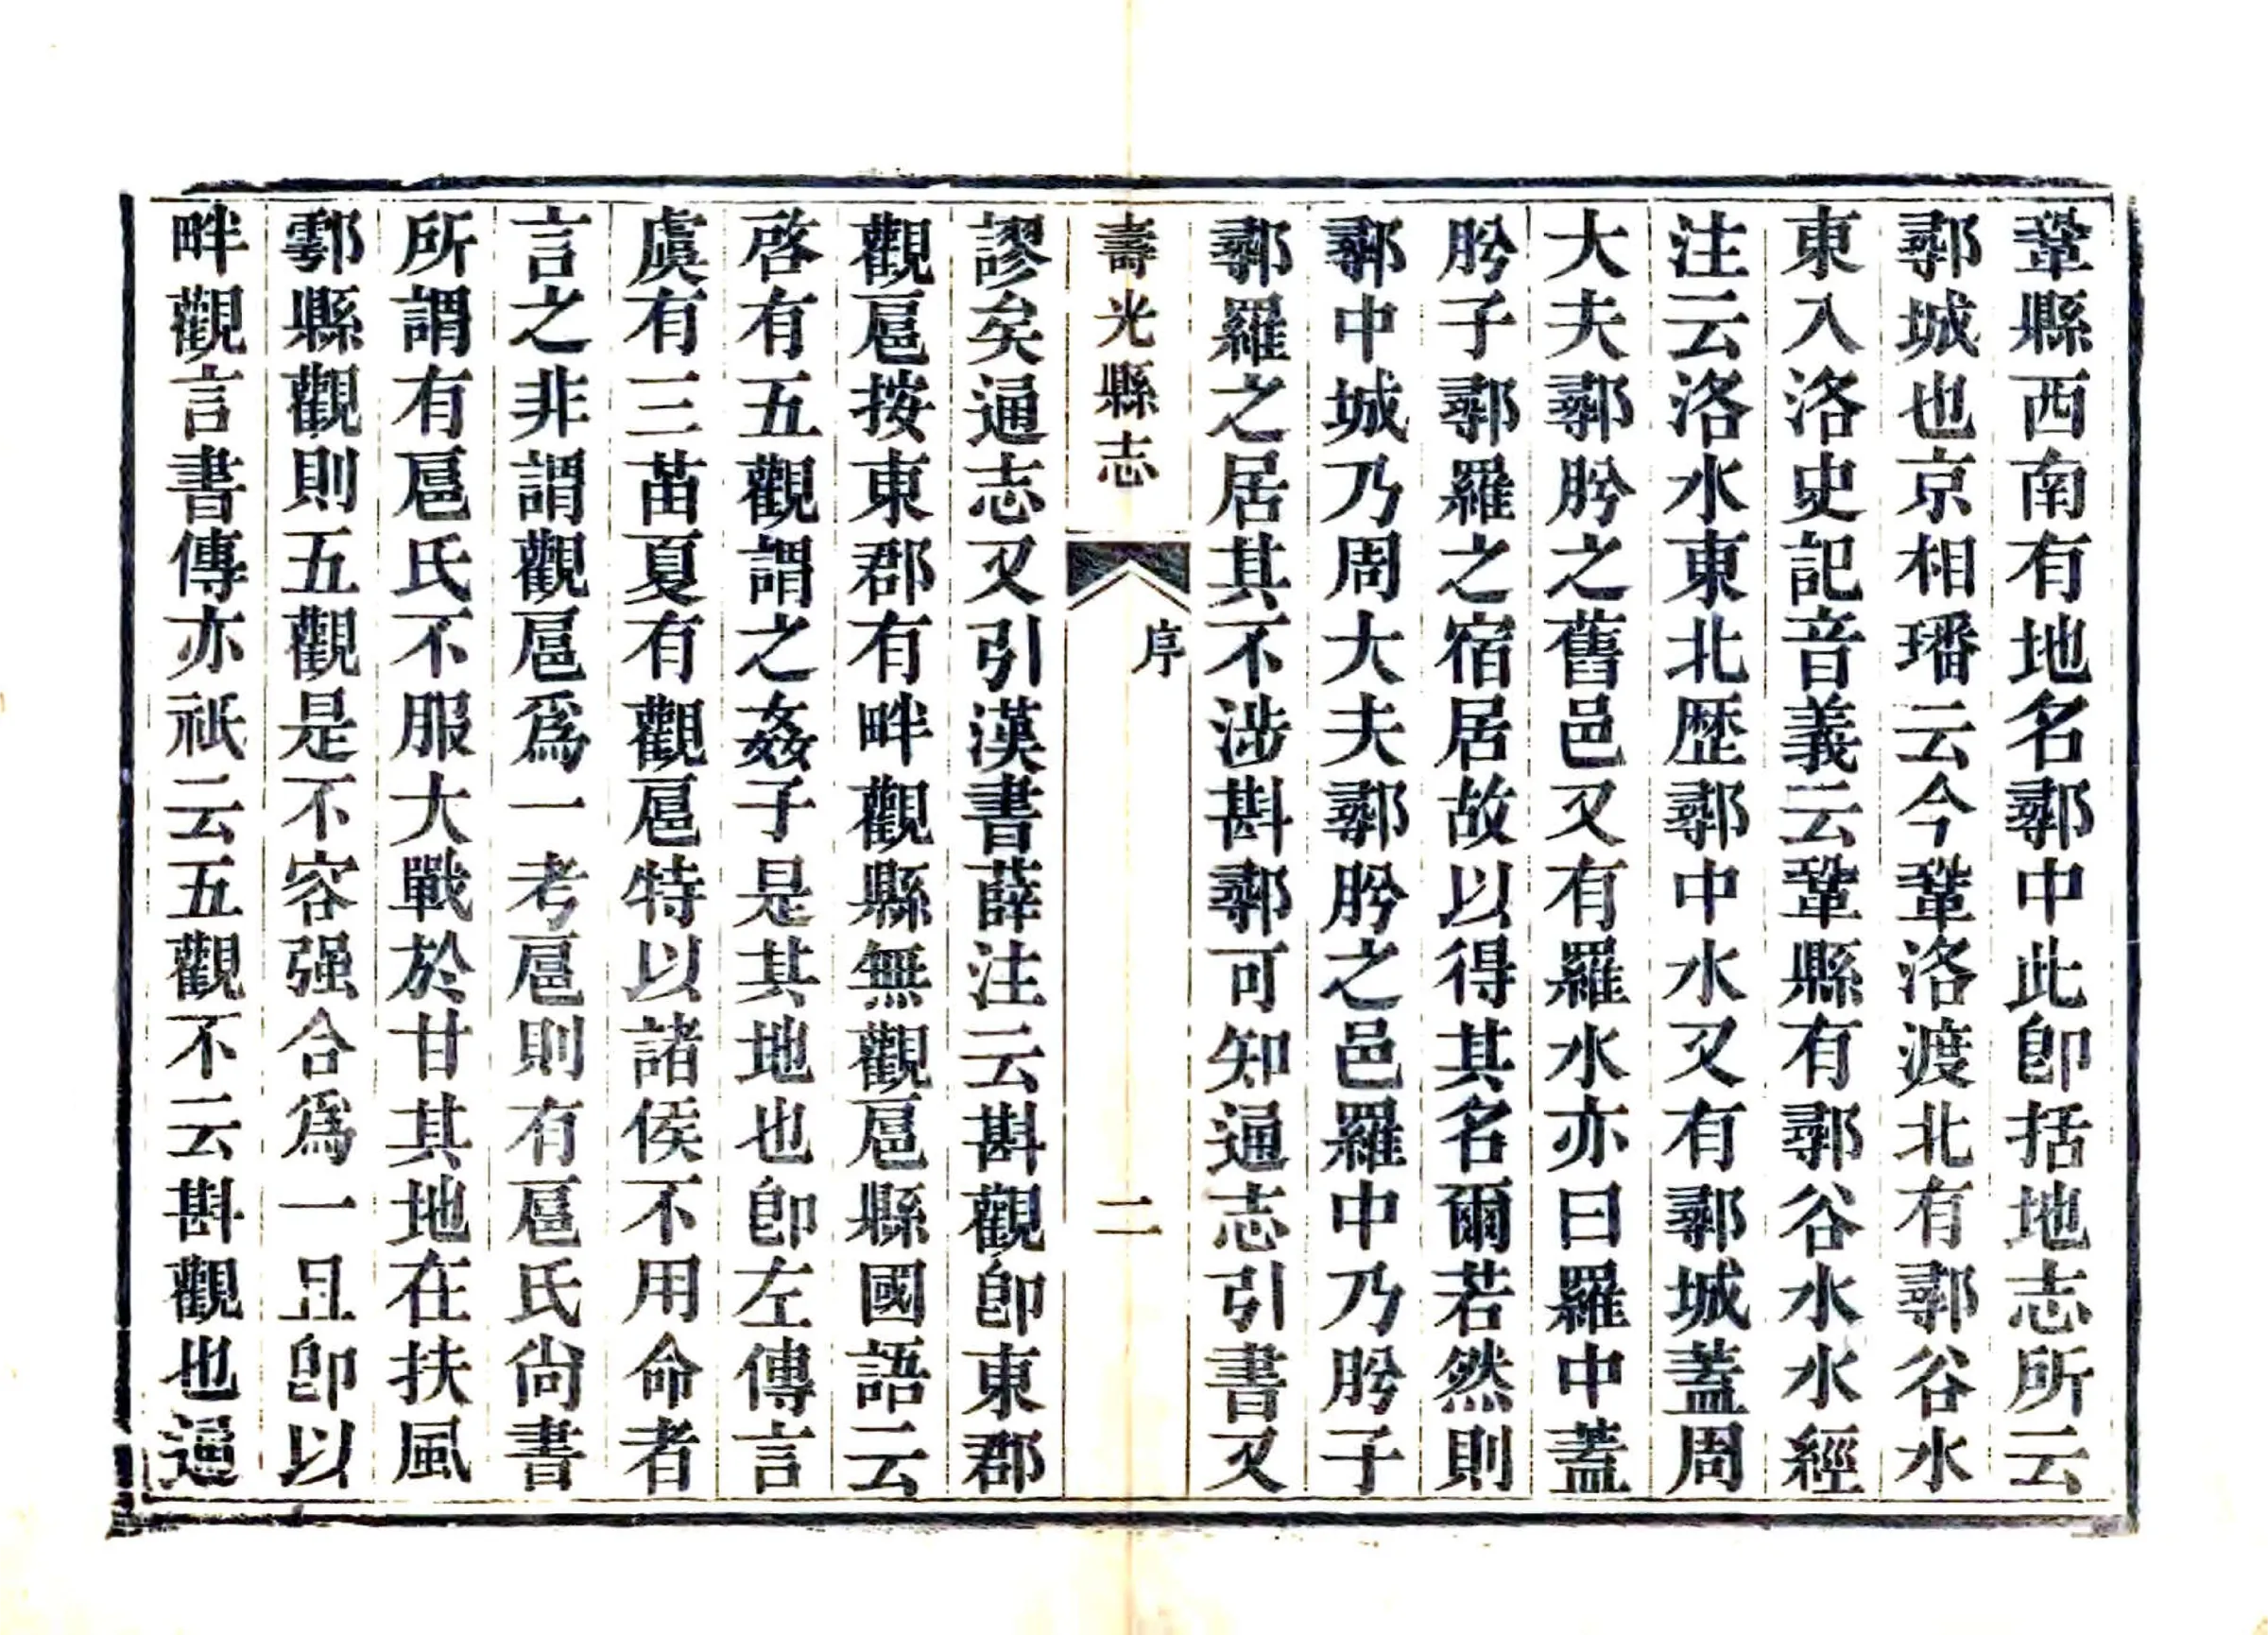 鞏縣西南有地名鄩中此卽括地志所云
鄩城也京相璠云今鞏洛渡北有鄩谷水
東入洛史記音義云鞏縣有鄩谷水水經
注云洛水東北歴鄩中水又有鄩城蓋周
大夫鄩肸之舊邑又有羅水亦曰羅中蓋
肸子鄩羅之宿居故以得其名爾若然則
鄩中城乃周大夫鄩肸之邑羅中乃肸子
鄩羅之居其不涉斟鄩可知通志引書又
壽光縣志
序
二
謬矣通志又引漢書薛注云斟觀卽東郡
觀扈按東郡有畔觀縣無觀扈縣國語云
啓有五觀謂之姦子是其地也卽左傳言
虞有三苗夏有觀扈特以諸侯不用命者
言之非謂觀扈爲一考扈則有扈氏尙書
所謂有扈氏不服大戰於甘其地在扶風
鄠縣觀則五觀是不容强合爲一且卽以
畔觀言書傳亦祇云五觀不云斟觀也通